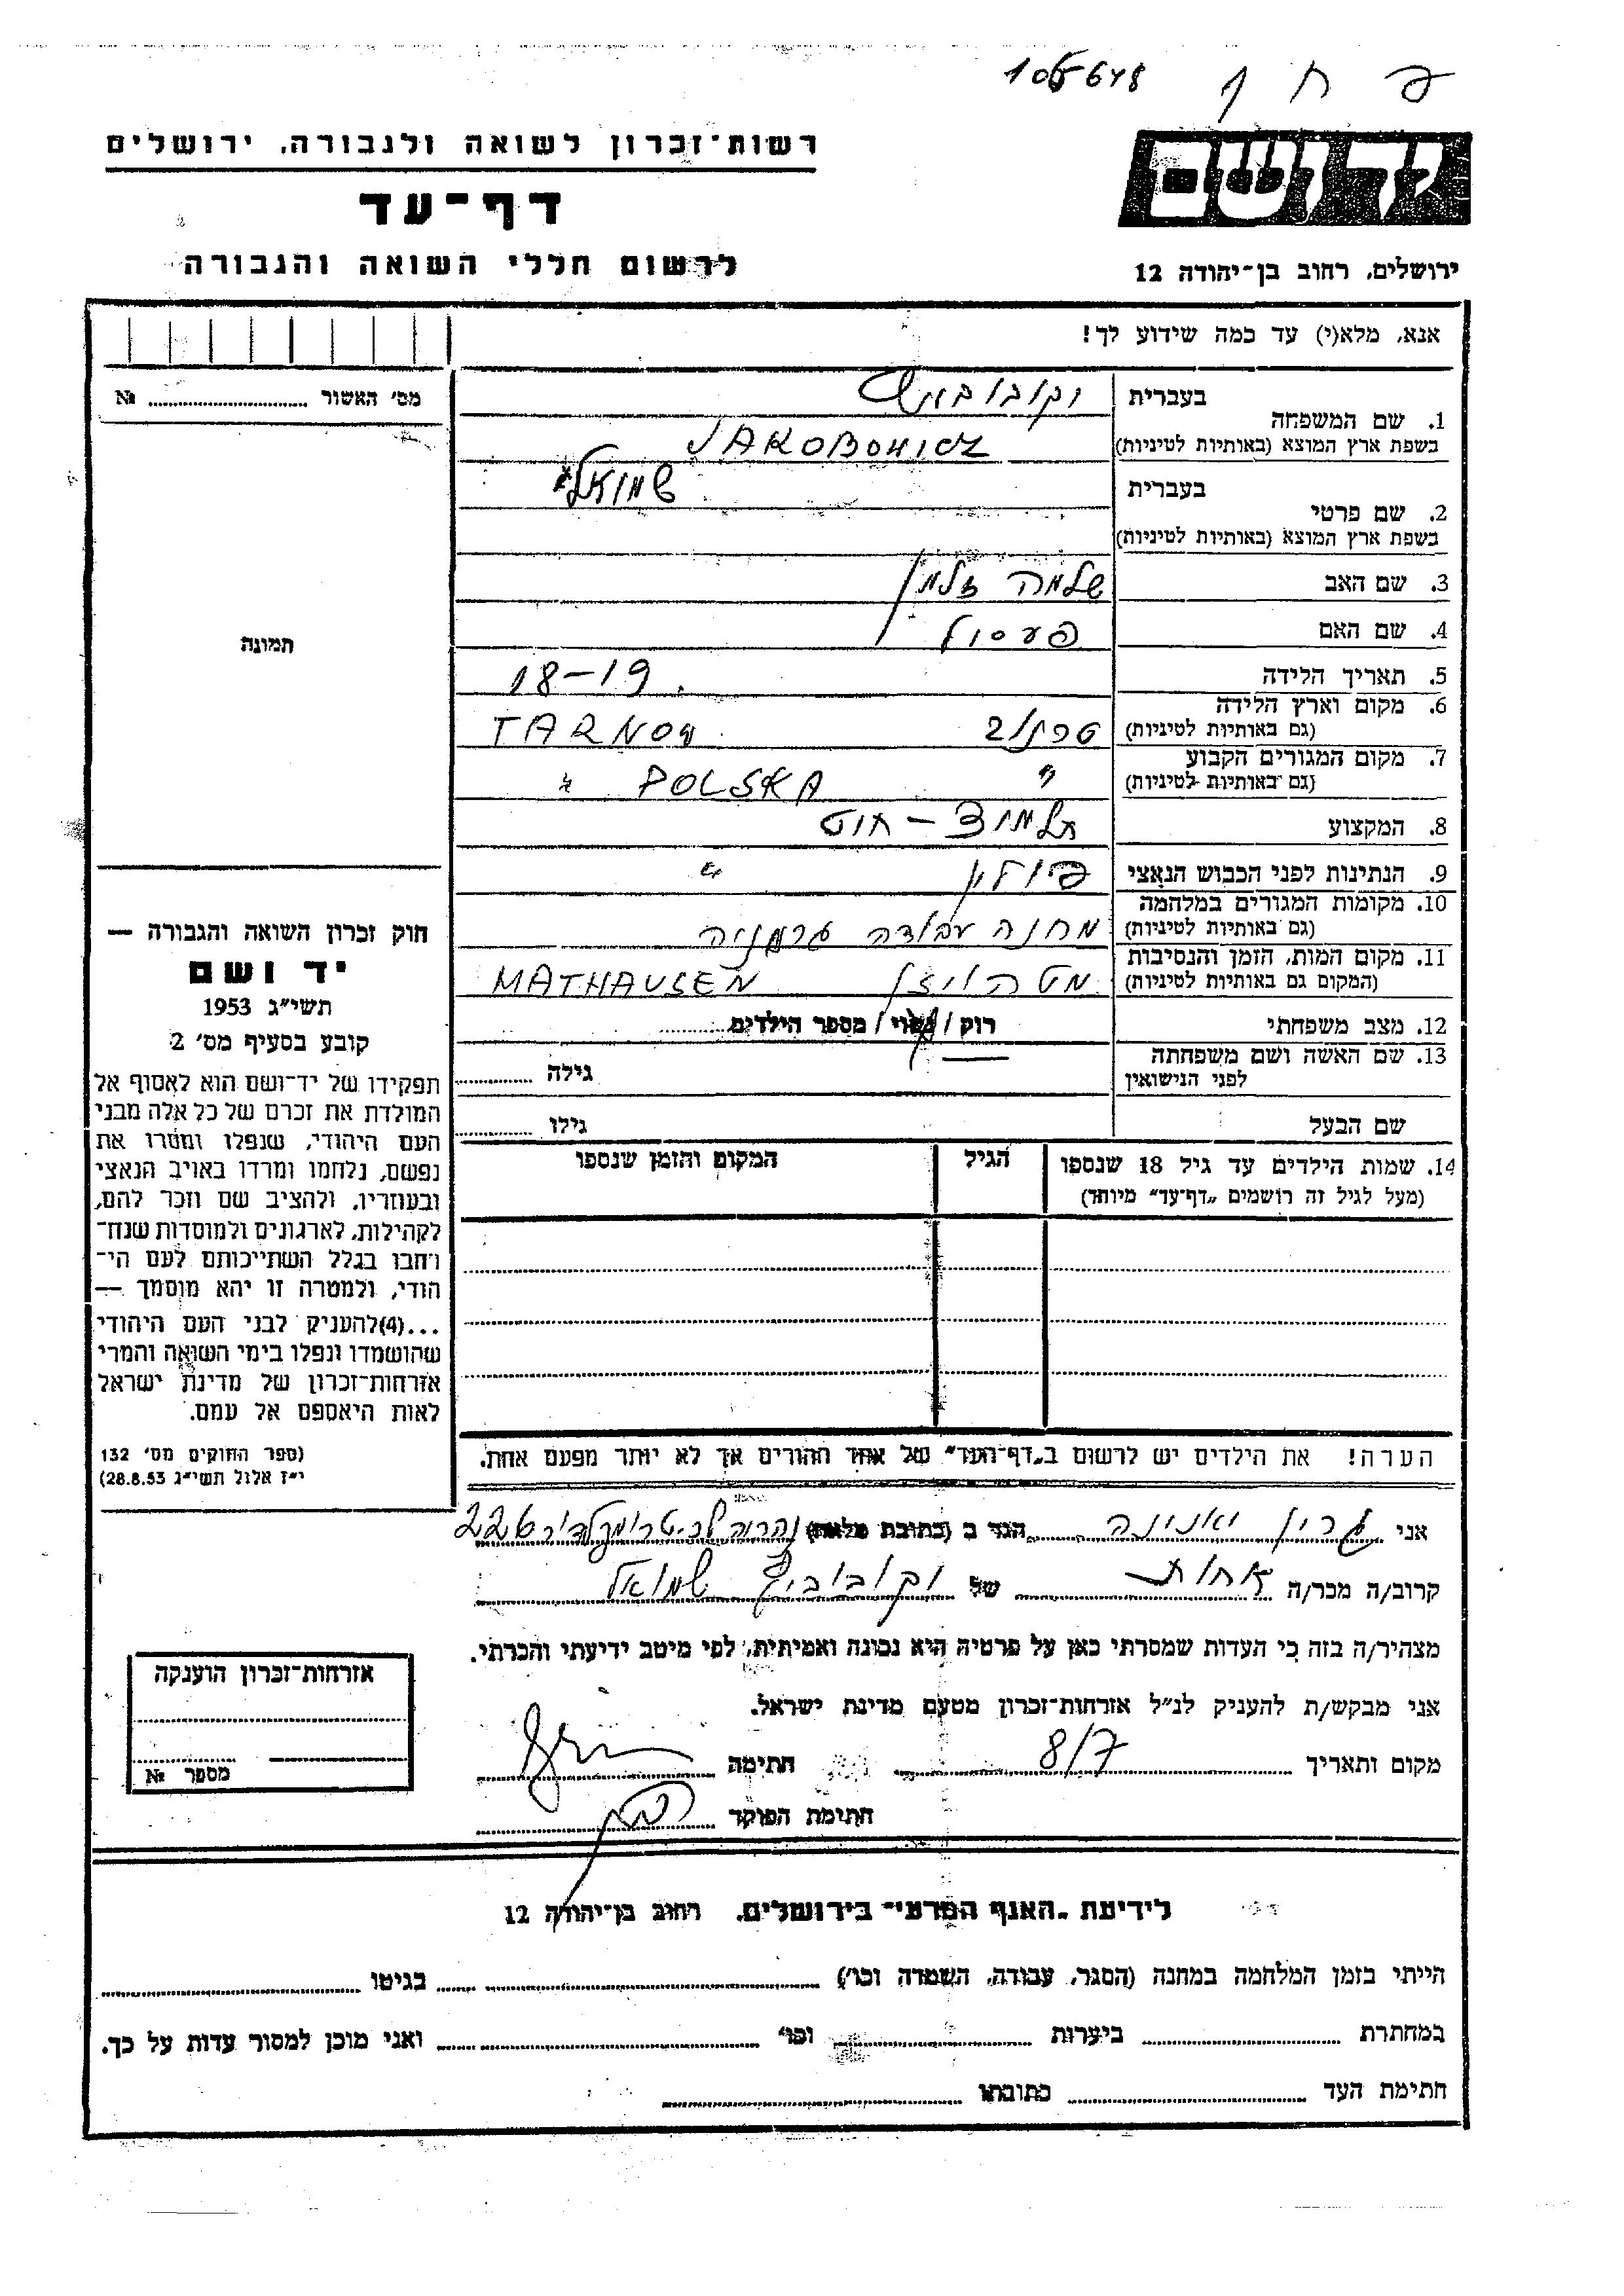 105648
רשות־זכרון לשואה ולגבורה, ירושלים
דף־עד
לרשום חללי השואה והגבורה
ידושם
ירושלים, רחוב בן־יהודה 12
אנא, מלא(י) עד כמה שידוע לך!
מס׳ האשור № 
תמונה
חוק זכרון השואה והגבורה —
יד ושם
תשי״ג 1953
קובע בסעיף מס׳ 2
תפקידו של יד־ושם הוא לאסוף אל
המולדת את זכרם של כל אלה מבני
העם היהודי, שנפלו ומסרו את
נפשם, נלחמו ומרדו באויב הנאצי
ובעוזריו, ולהציב שם וזכר להם,
לקהילות, לארגונים ולמוסדות שנח־
רחבו בגלל השתייכותם לעם הי־
הודי, ולמטרה זו יהא מוסמך —
...(4)להעניק לבני העם היהודי
שהושמדו ונפלו בימי השואה והמרי
אזרחות־זכרון של מדינת ישראל
לאות היאספם אל עמם.
(ספר החוקים מס׳ 132
י״ז אלול תשי״ג 28.8.53)
1. שם המשפחה
בעברית יקובוביץ
בשפת ארץ המוצא (באותיות לטיניות) JAKOBOWICZ
2. שם פרטי
בעברית שמואל
בשפת ארץ המוצא (באותיות לטיניות)
3. שם האב שלמה זלמן
4. שם האם
5. תאריך הלידה 18-19
6. מקום וארץ הלידה
(גם באותיות לטיניות) טרנוב TARNOW
7. מקום המגורים הקבוע
(גם באותיות לטיניות) " POLSKA "
8. המקצוע
9. הנתינות לפני הכבוש הנאצי פולין
10. מקומות המגורים במלחמה
(גם באותיות לטיניות) מחנה עבודה גרמניה
11. מקום המות, הזמן והנסיבות
(המקום גם באותיות לטיניות) מטהויזן MATHAUSEN
12. מצב משפחתי רוק / נשוי / מספר הילדים
13. שם האשה ושם משפחתה
לפני הנישואין גילה
שם הבעל גילו
14. שמות הילדים עד גיל 18 שנספו
(מעל לגיל זה רושמים „דף־עד״ מיוחד)
הגיל
המקום והזמן שנספו
הערה! את הילדים יש לרשום ב„דף־העד״ של אחד ההורים אך לא יותר מפעם אחת.
אני גרין יאנינה הגר ב (כתובת מלאה) נהריה
קרוב/ה מכר/ה אחות של יקובוביץ שמואל
מצהיר/ה בזה כי העדות שמסרתי כאן על פרטיה היא נכונה ואמיתית, לפי מיטב ידיעתי והכרתי.
אני מבקש/ת להעניק לנ״ל אזרחות־זכרון מטעם מדינת ישראל.
מקום ותאריך 8/7 חתימה
חתימת הפוקד
אזרחות־זכרון הוענקה
מספר №
לידיעת „האגף המדעי״ בירושלים, רחוב בן־יהודה 12
הייתי בזמן המלחמה במחנה (הסגר, עבודה, השמדה וכו׳) בגיטו
במחתרת ביערות וכו׳ ואני מוכן למסור עדות על כך.
חתימת העד כתובתו